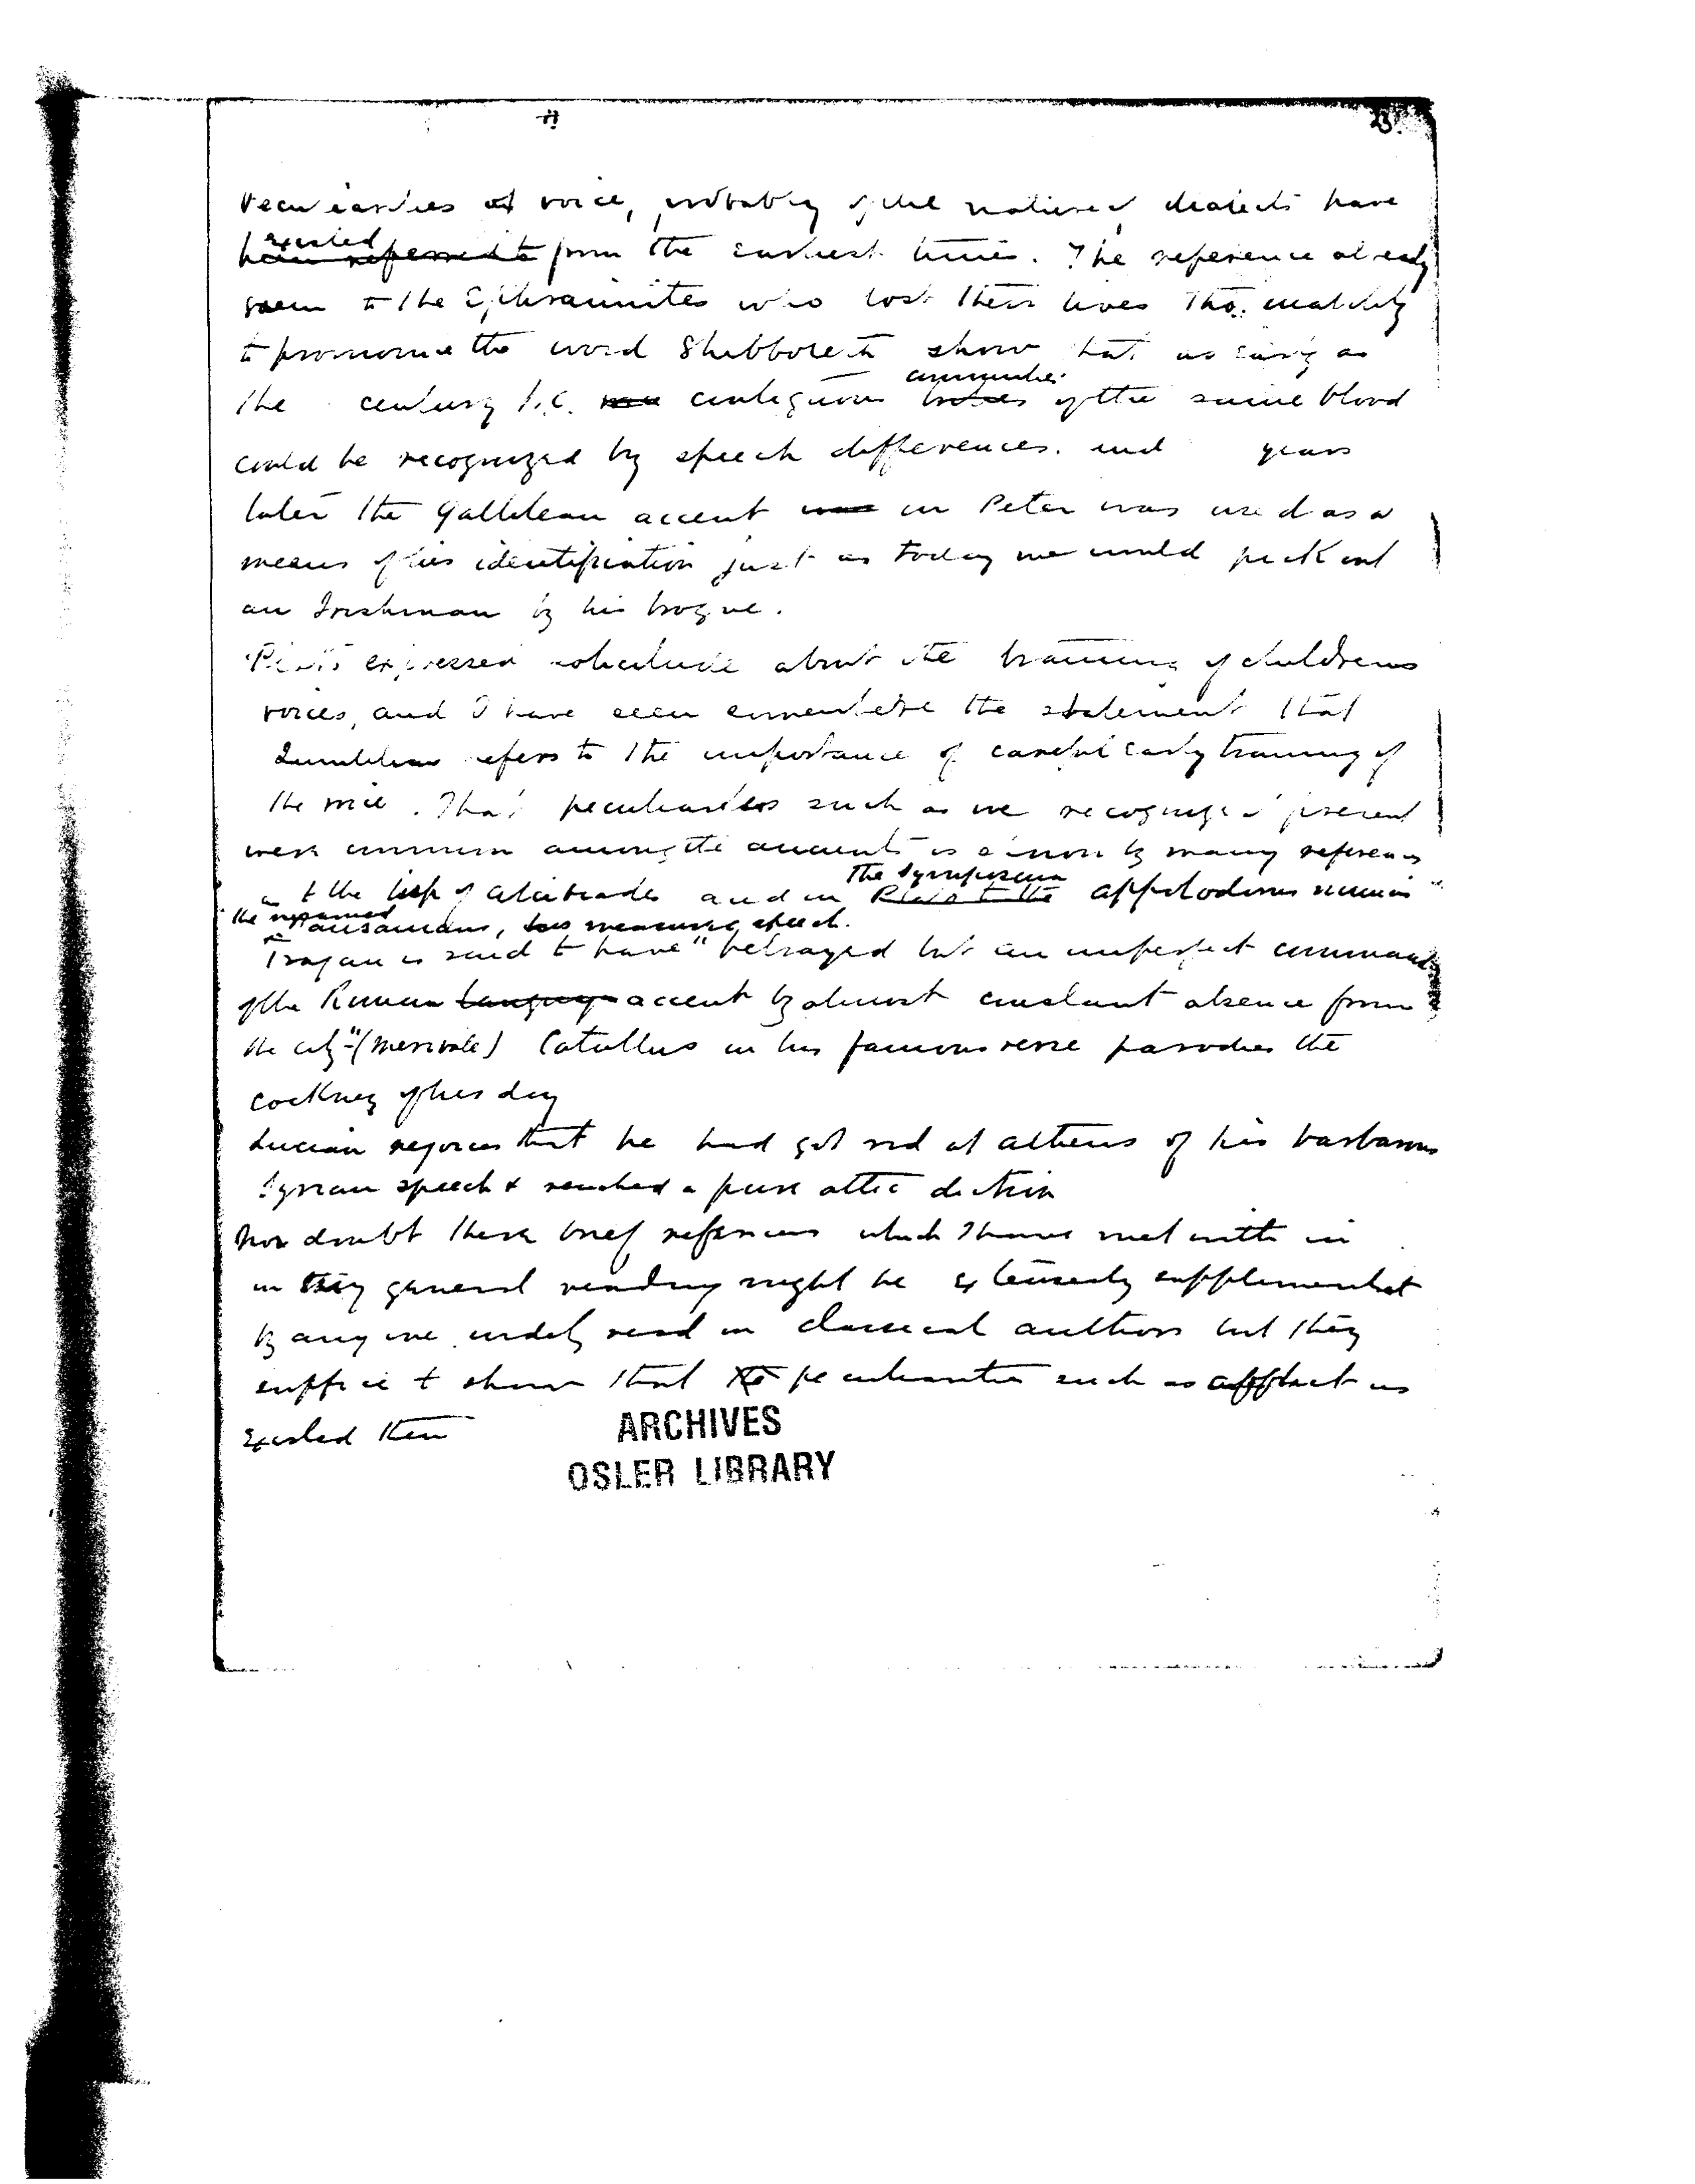 23.
Peculiarities of voice, probably of the national dialects have
existed
been referred to from the earliest times. The reference already
to the Ephraimites who lost their lives thro. inability
to pronounce the word Shibboleth show that as early as
communities
the century B.C. contiguous bodies of the same blood
could be recognized by speech differences. and years
later the Gallilean accent was in Peter was used as a
means of his identification just as today we would pick out
an Irishman by his brogue.
expressed solicitude about the training of childrens
voices, and I have seen somewhere the statement that
Quintilian refers to the importance of careful early training of
the voice. That peculiarities such as we recognize present
were common among the ancients is shown by many references
The Symposium
as to the lisp of Alcibiades and in Plato to the Appolodorus
the Pausanius, measured speech.
Trajan is said to have "betrayed but an imperfect command
of the Roman language accent by almost constant absence from
the city"-(Merivale) Catullus in his famous verse parodies the
cockney of his day
Lucian rejoices that he had got rid at Athens of his barbarous
Syrian speech & reached a pure attic diction
Now doubt these brief references which I have met with in
in my general reading might be extensively supplemented
by any one widely read in classical authors but they
suffice to show that the peculiarities such as afflict us
existed then
ARCHIVES
OSLER LIBRARY